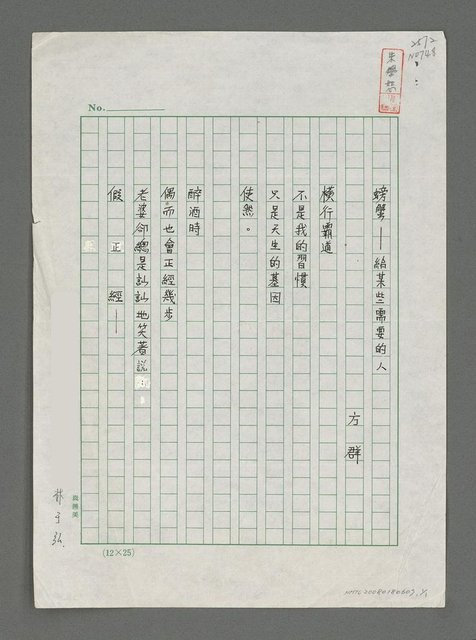 2572
No.
螃蟹——給某些需要的人
方群
橫行霸道
不是我的習慣
只是天生的基因
使然。
醉酒時
偶而也會正經幾步
老婆卻總是訕訕地笑著說：
假正經——
(12×25)
林于弘